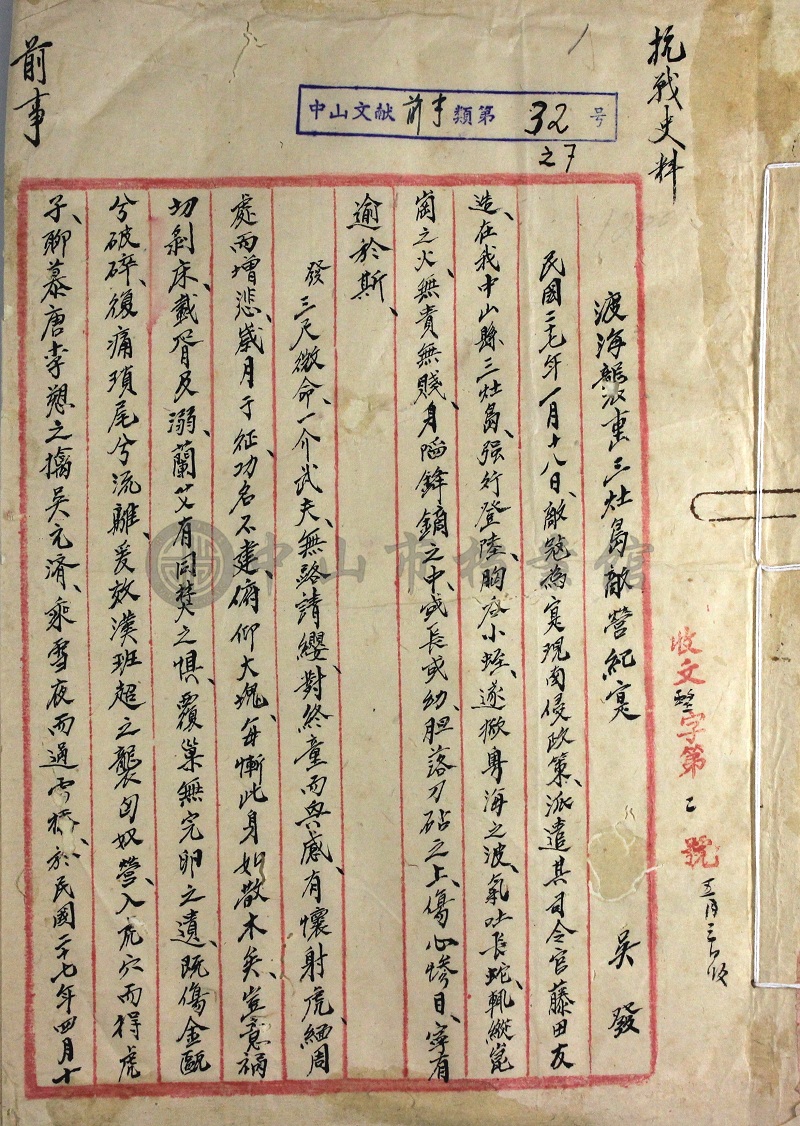 抗戰史料
前事
中山文献前事類第32号
之7
收文整字第 2 號
五月三
渡海襲擊三灶島敵營紀寔
吳發
民國二十七年一月十八日、敵寇為寔現南侵政策、派遣其司令官藤田友
造、在我中山縣三灶島、强行登陸、胸吞小蛭、遂掀粤海之波、氣吐長蛇、輒縱崑
崗之火、無貴無賤、身陷鋒鏑之中、或長或幼、胆落刀砧之上、傷心慘目、寧有
逾於斯、
發三尺微命、一介武夫、無路請纓、對終童而興感、有懷射虎、緬周
處而增悲、歲月于征、功名不建、俯仰大塊、每慚此身如散木矣、豈意禍
切剥床、載胥及溺、蘭艾有同焚之惧、覆巢無完卵之遺、既傷金甌
兮破碎、復痛瑣尾兮流離、爰效漢班超之襲匈奴營、入虎穴而得虎
子、聊慕唐李愬之擒吳元濟、乘雪夜而過雪橋、於民國二十七年四月十
中山市档案馆